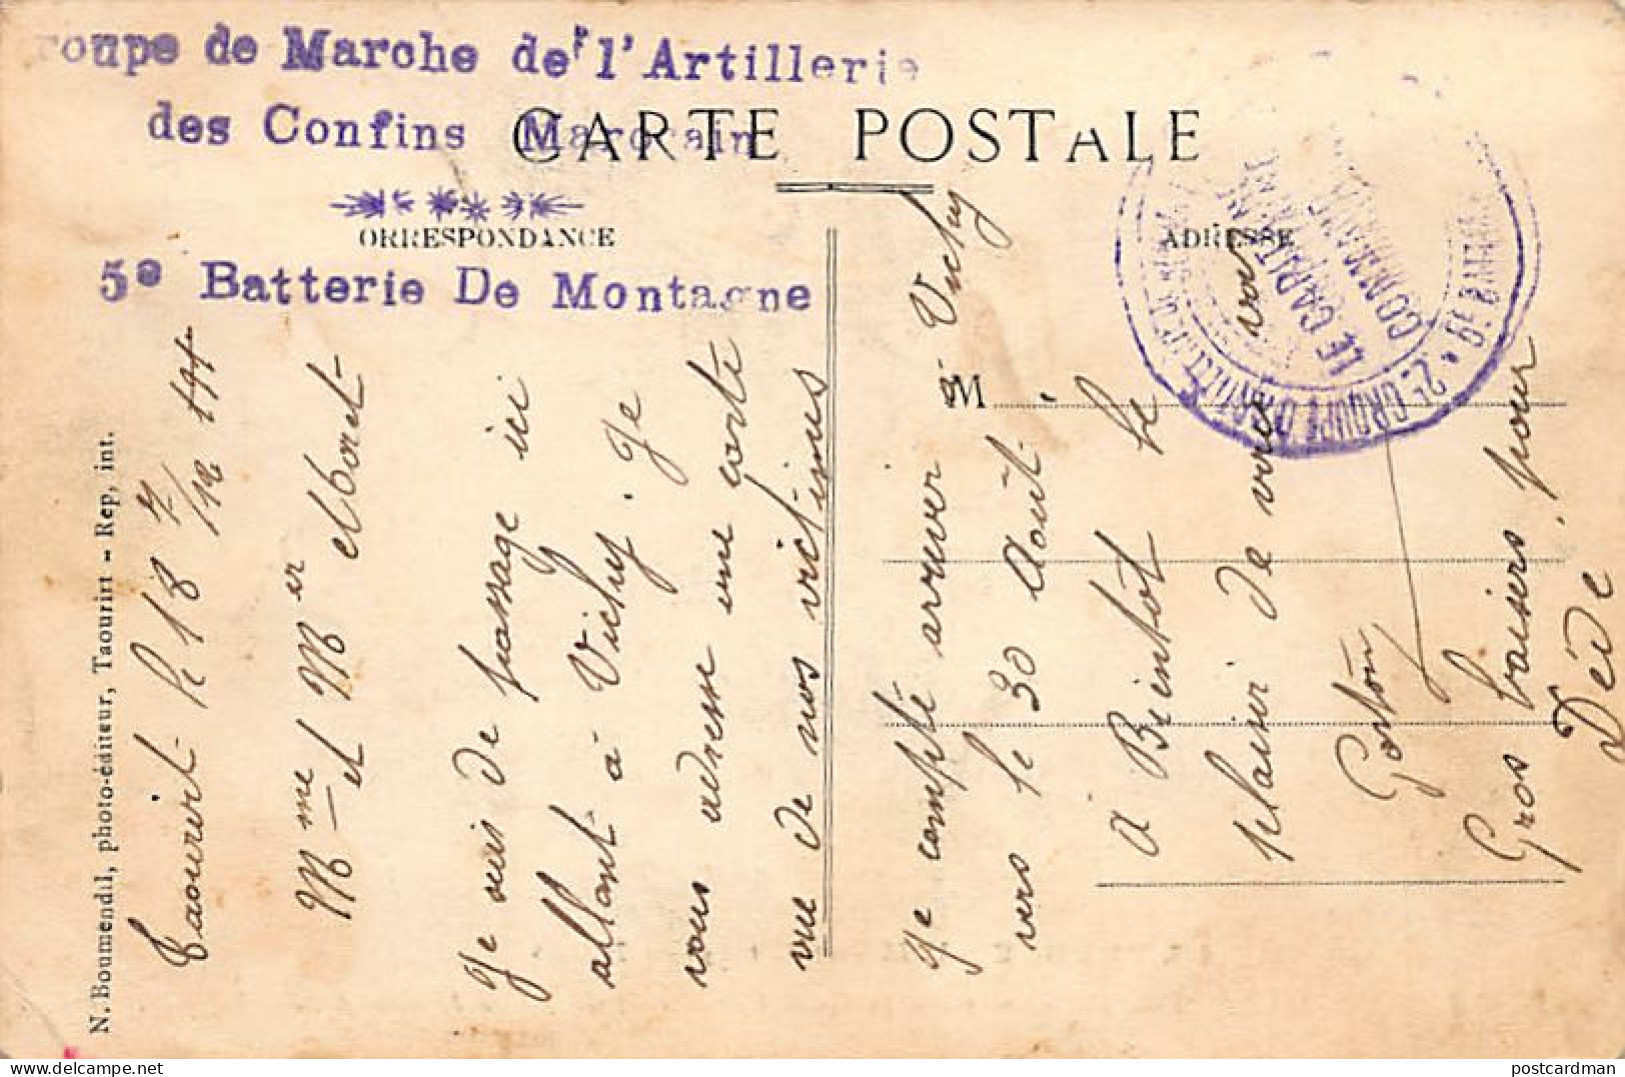 roupe de Marche de l'Artillerie
des Confins Marocain
CARTE POSTALE
ORRESPONDANCE
ADRESSE
5e Batterie De Montagne
M
2e GROUPE D'
LE CAPITAINE
COMMANDANT
BATTERIE
N. Boumendil, photo-éditeur, Taourirt - Rep, int.
Taourirt le 18
Mme et Mr
Je suis de passage ici
allant à Vichy. Je
vous adresse une carte
vue de nos victimes
Je compte arriver à Vichy
vers le 30 Août.
à Bientôt le
plaisir de vous voir
Gaston
Gros baisers pour
Dédé
postcardman